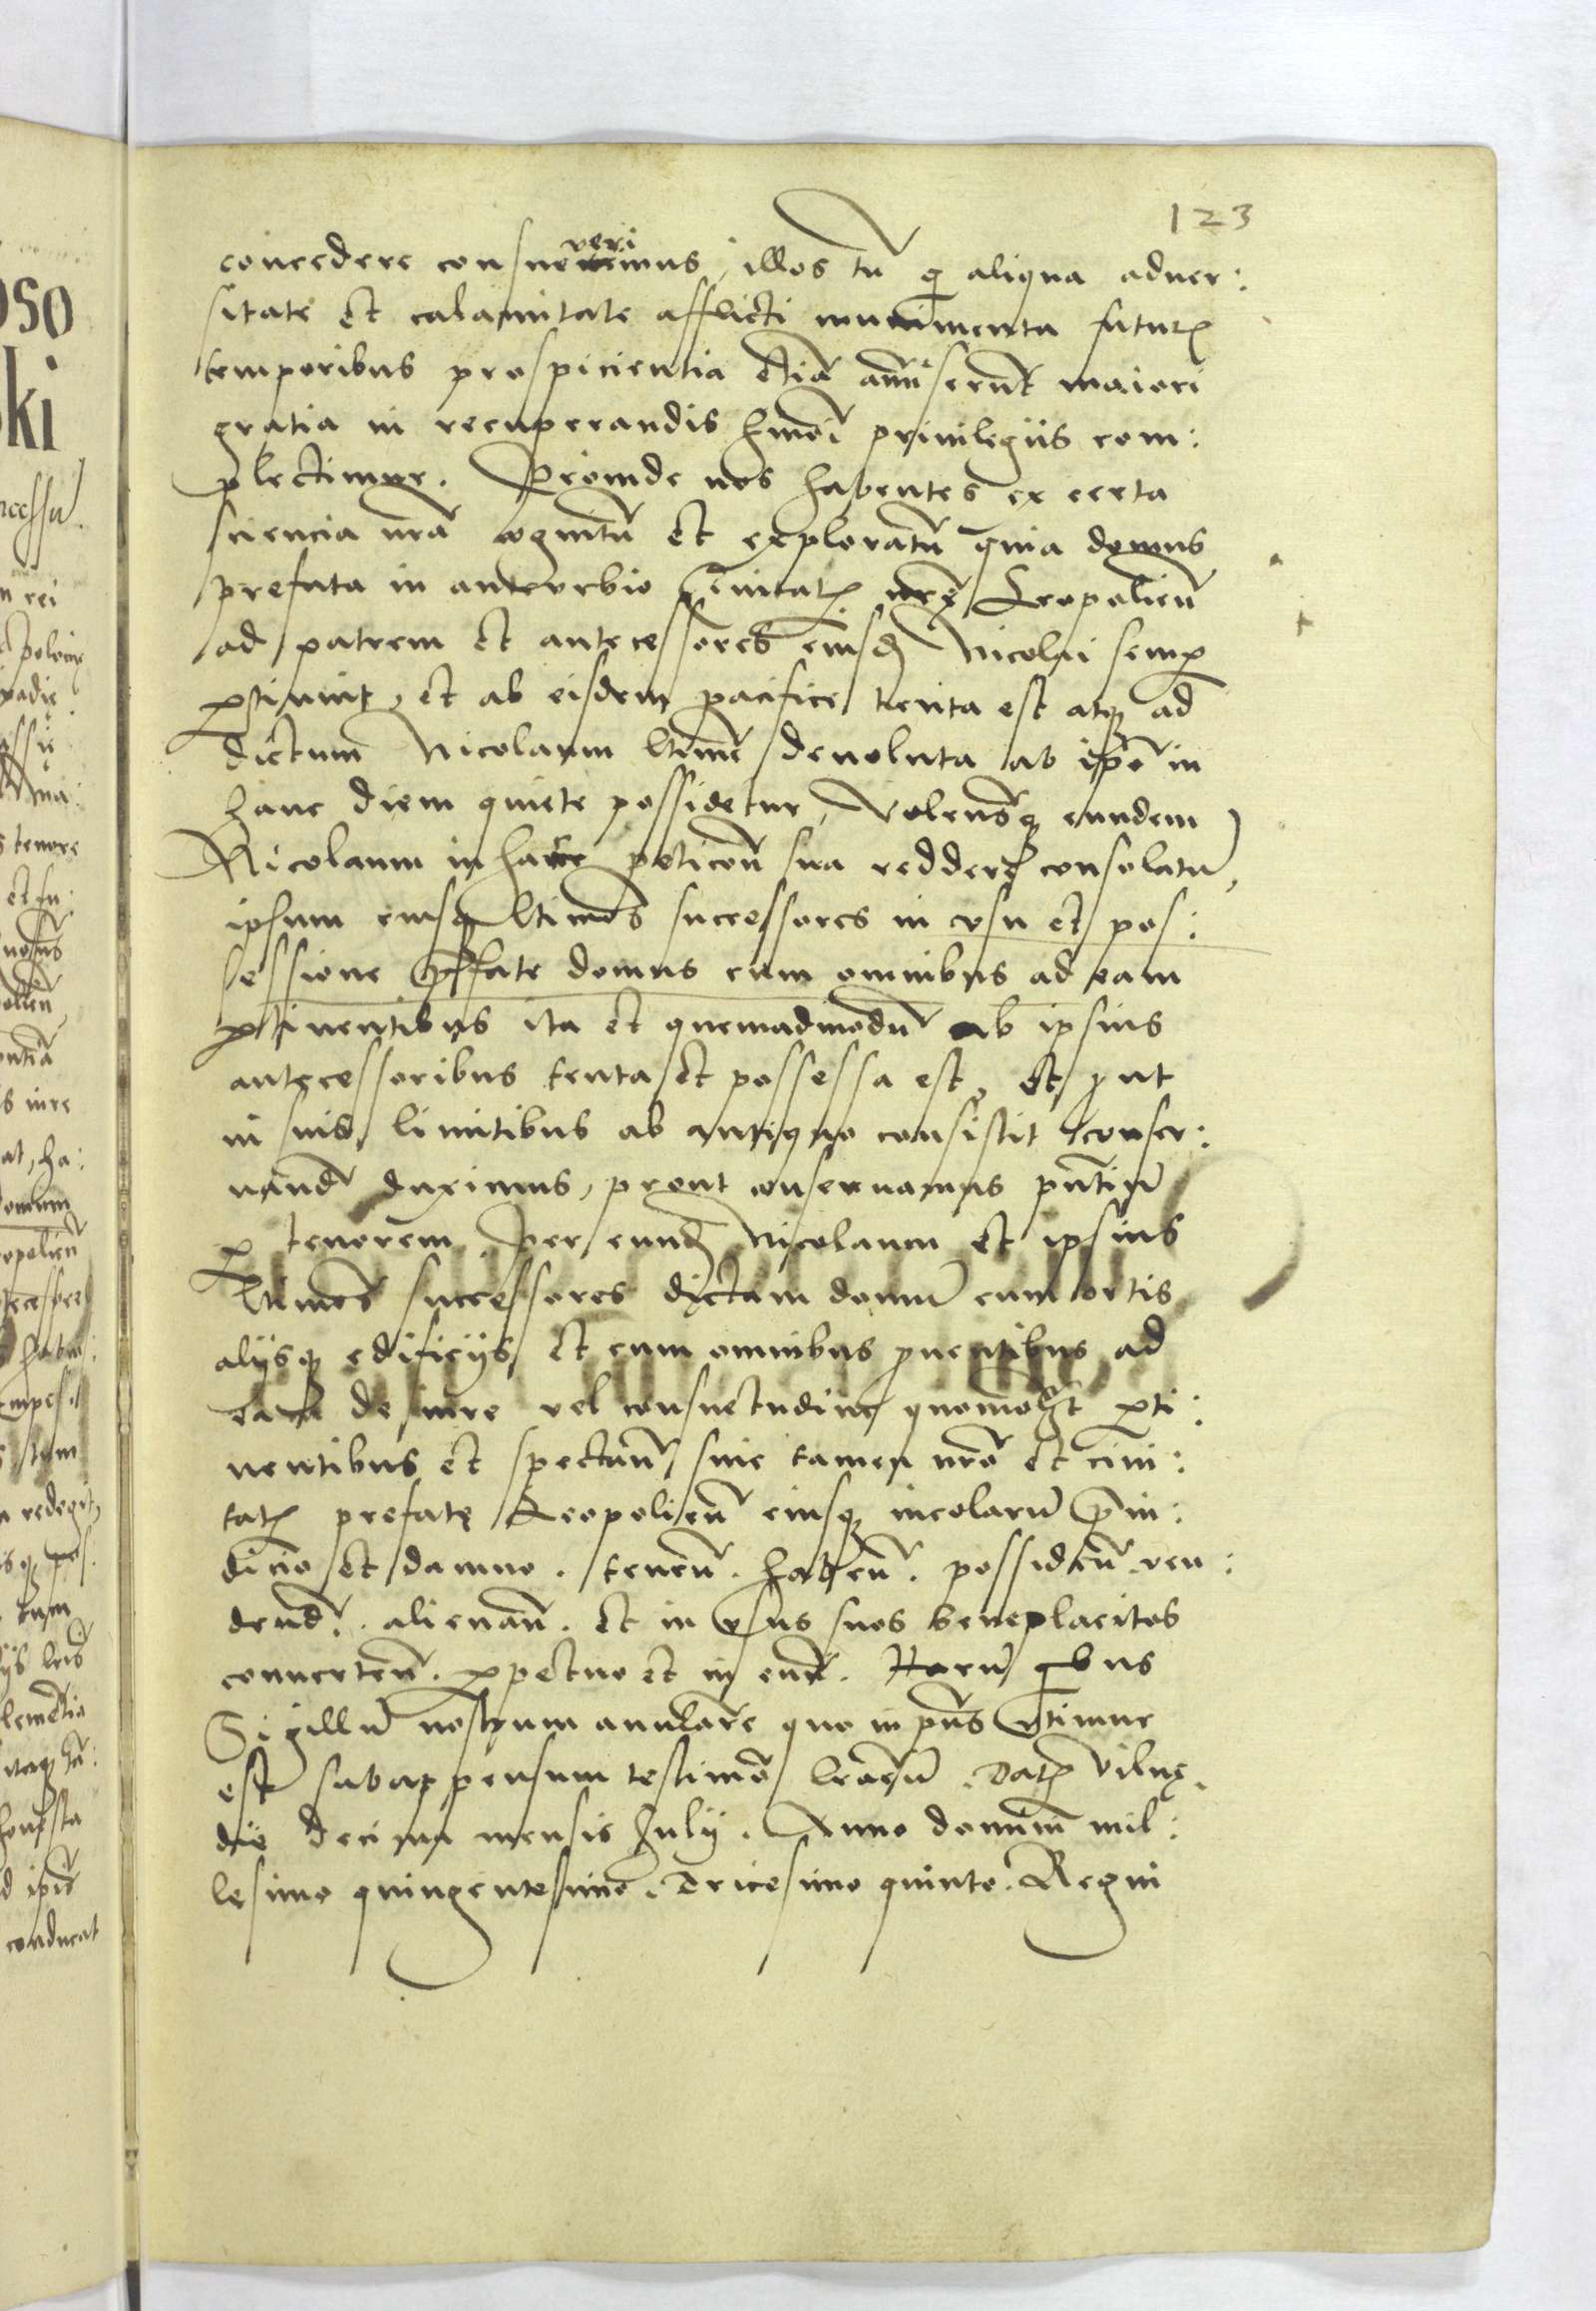 123
concedere consueverimus, illos tn̄ q̄ aliqua adver:
sitate et calamitate afflicti munimenta futur̄
temporibus prospicientia etiā amiserunt maiori
gratia in recuperandis hmōi privilegiis com:
plectimur. Proinde nos habentes ex certa
sciencia nrā cognitū et exploratū quia domus
prefata in anteurbio civitat̄ nrę Leopolien̄
ad patrem et antecessores eiusd̄ Nicolai semp̄
ptinuit, et ab eisdem pacifice tenta est atq̄ ad
dictum Nicolaum ltime devoluta ab ipō in
hanc diem quiete possidetur, Volensq̄ eundem
Nicolaum in hac peticoñ sua reddere consolatū,
ipsum eiusq̄ ltimos successores in usu et pos:
sessione p̄fate domus cum omnibus ad eam
ptinentibus ita et quemadmodū ab ipsius
antecessoribus tenta et possessa est, et put
in suis limitibus ab antiquo consistit conser:
vand̄ duximus, prout conservamus pn̄tiū
p tenorem, per eund̄ Nicolaum et ipsius
ltimos successores dictam domū cum ortis
alijsq̄ edificijs et cum omnibus pventibus ad
eam de iure vel consuetudine quomōlt pti:
nentibus et spectan̄ sine tamen nrō et civi:
tat̄ prefatę Leopolien̄ eiusq̄ incolarū p̄iu:
dicio et damno. tenen̄. haben̄. possiden̄. ven:
dend̄. alienan̄. et in usus suos beneplacitos
converten̄. ppetuo et in evū. Harū qbus
Sigillū nostrum anulare quo in pn̄s utimur
est subappensum testimō lrarū. Dat̄ Vilnę.
die decima mensis Julij. Anno domini mil:
lesimo quingentesimo. Tricesimo quinto. Regni